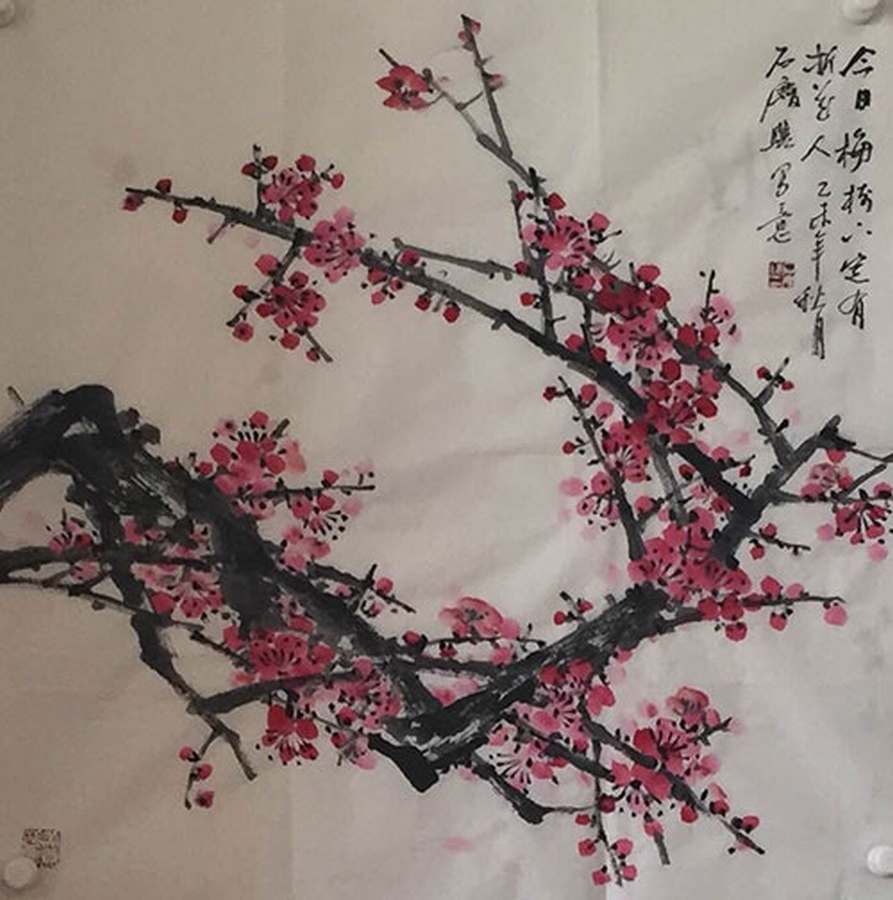 今日梅树下定有
折花人乙未年秋月
石写意